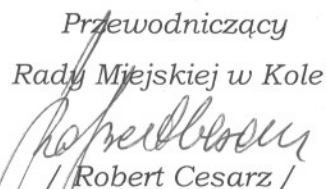 Przewodniczący
Rady Miejskiej w Kole
/ Robert Cesarz /